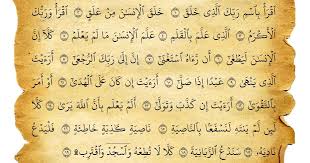 ٱقۡرَأۡ بِٱسۡمِ رَبِّكَ ٱلَّذِي خَلَقَ ۝ خَلَقَ ٱلۡإِنسَٰنَ مِنۡ عَلَقٍ ۝ ٱقۡرَأۡ وَرَبُّكَ
ٱلۡأَكۡرَمُ ۝ ٱلَّذِي عَلَّمَ بِٱلۡقَلَمِ ۝ عَلَّمَ ٱلۡإِنسَٰنَ مَا لَمۡ يَعۡلَمۡ ۝ كَلَّآ إِنَّ
ٱلۡإِنسَٰنَ لَيَطۡغَىٰٓ ۝ أَن رَّءَاهُ ٱسۡتَغۡنَىٰٓ ۝ إِنَّ إِلَىٰ رَبِّكَ ٱلرُّجۡعَىٰٓ ۝ أَرَءَيۡتَ
ٱلَّذِي يَنۡهَىٰ ۝ عَبۡدًا إِذَا صَلَّىٰٓ ۝ أَرَءَيۡتَ إِن كَانَ عَلَى ٱلۡهُدَىٰٓ ۝ أَوۡ أَمَرَ
بِٱلتَّقۡوَىٰٓ ۝ أَرَءَيۡتَ إِن كَذَّبَ وَتَوَلَّىٰٓ ۝ أَلَمۡ يَعۡلَم بِأَنَّ ٱللَّهَ يَرَىٰ ۝ كَلَّا
لَئِن لَّمۡ يَنتَهِ لَنَسۡفَعَۢا بِٱلنَّاصِيَةِ ۝ نَاصِيَةٖ كَٰذِبَةٍ خَاطِئَةٖ ۝ فَلۡيَدۡعُ
نَادِيَهُۥ ۝ سَنَدۡعُ ٱلزَّبَانِيَةَ ۝ كَلَّا لَا تُطِعۡهُ وَٱسۡجُدۡۤ وَٱقۡتَرِب۩ ۝